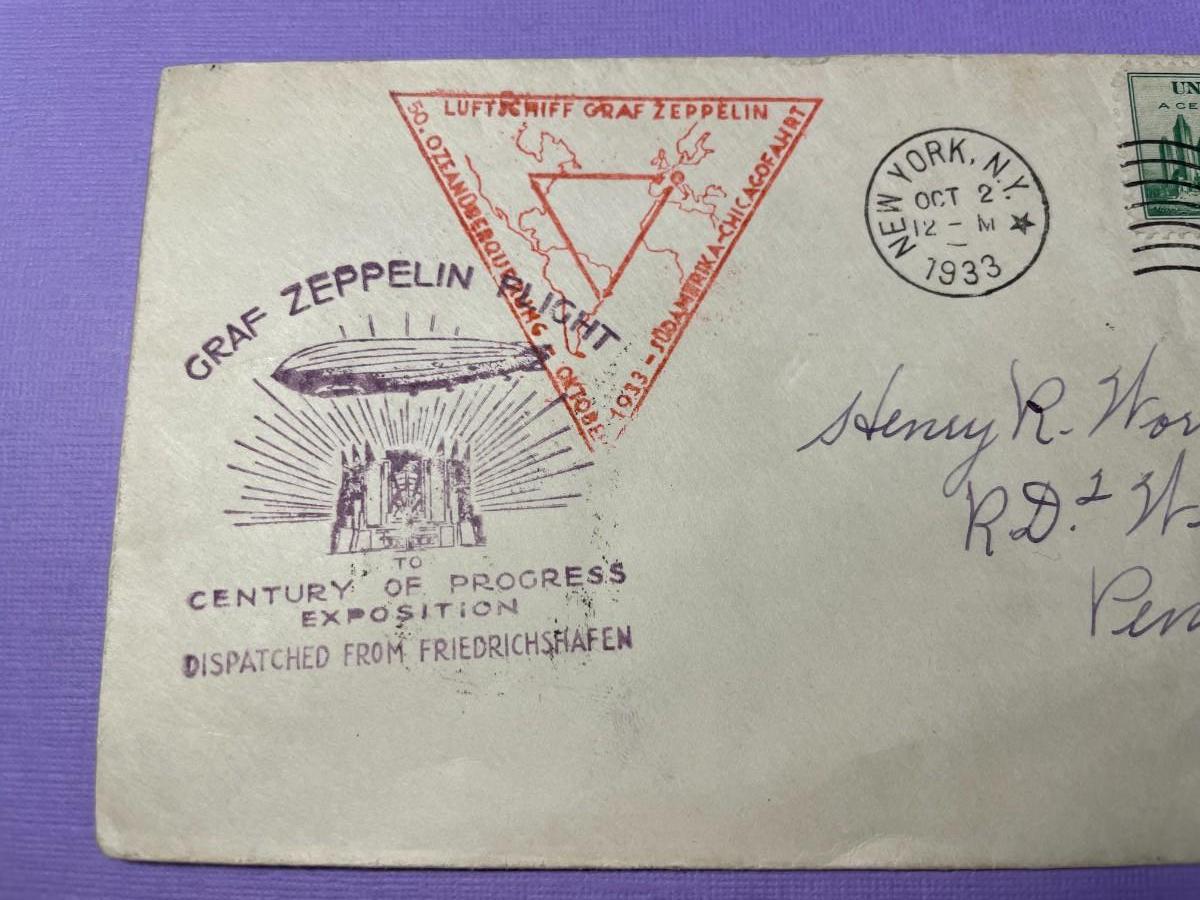 LUFTSCHIFF GRAF ZEPPELIN
50. OZEANÜBERQUERUNG
OKTOBER
1933 - SÜDAMERIKA-CHICAGOFAHRT
NEW YORK, N.Y.
OCT 2
12 - M
1933
UN
A CE
GRAF ZEPPELIN FLIGHT
TO
CENTURY OF PROGRESS
EXPOSITION
DISPATCHED FROM FRIEDRICHSHAFEN
Henry R. Wor
R.D.
Pen